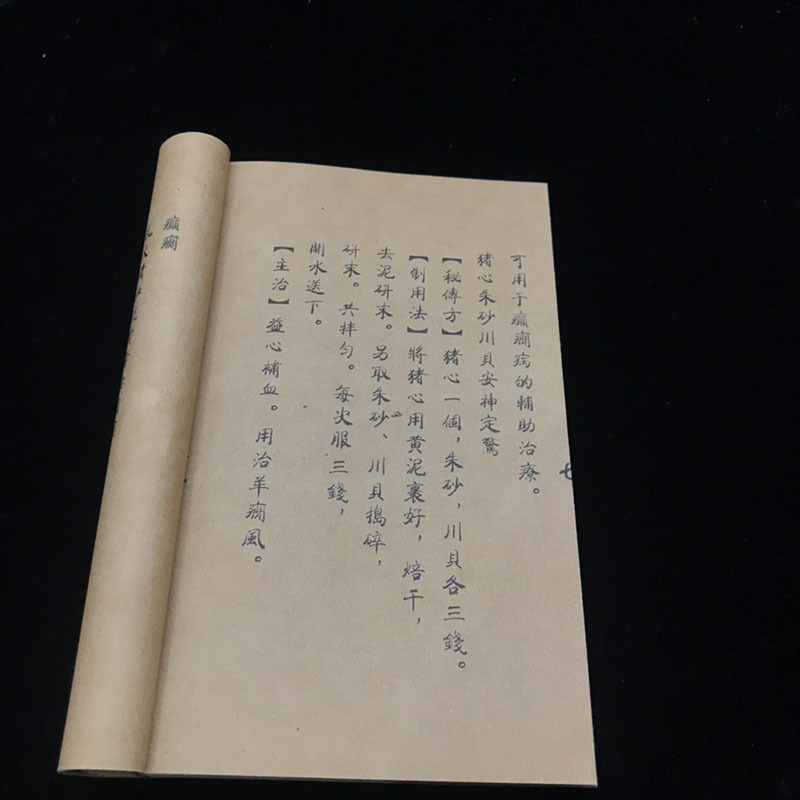 可用于癲癇病的輔助治療。
猪心朱砂川貝安神定驚
【秘傳方】猪心一個，朱砂，川貝各三錢。
【制用法】將猪心用黄泥裹好，焙干，
去泥研末。另取朱砂、川貝搗碎，
研末。共拌匀。每次服三錢，
開水送下。
【主治】益心補血。用治羊癇風。
癲癇
七